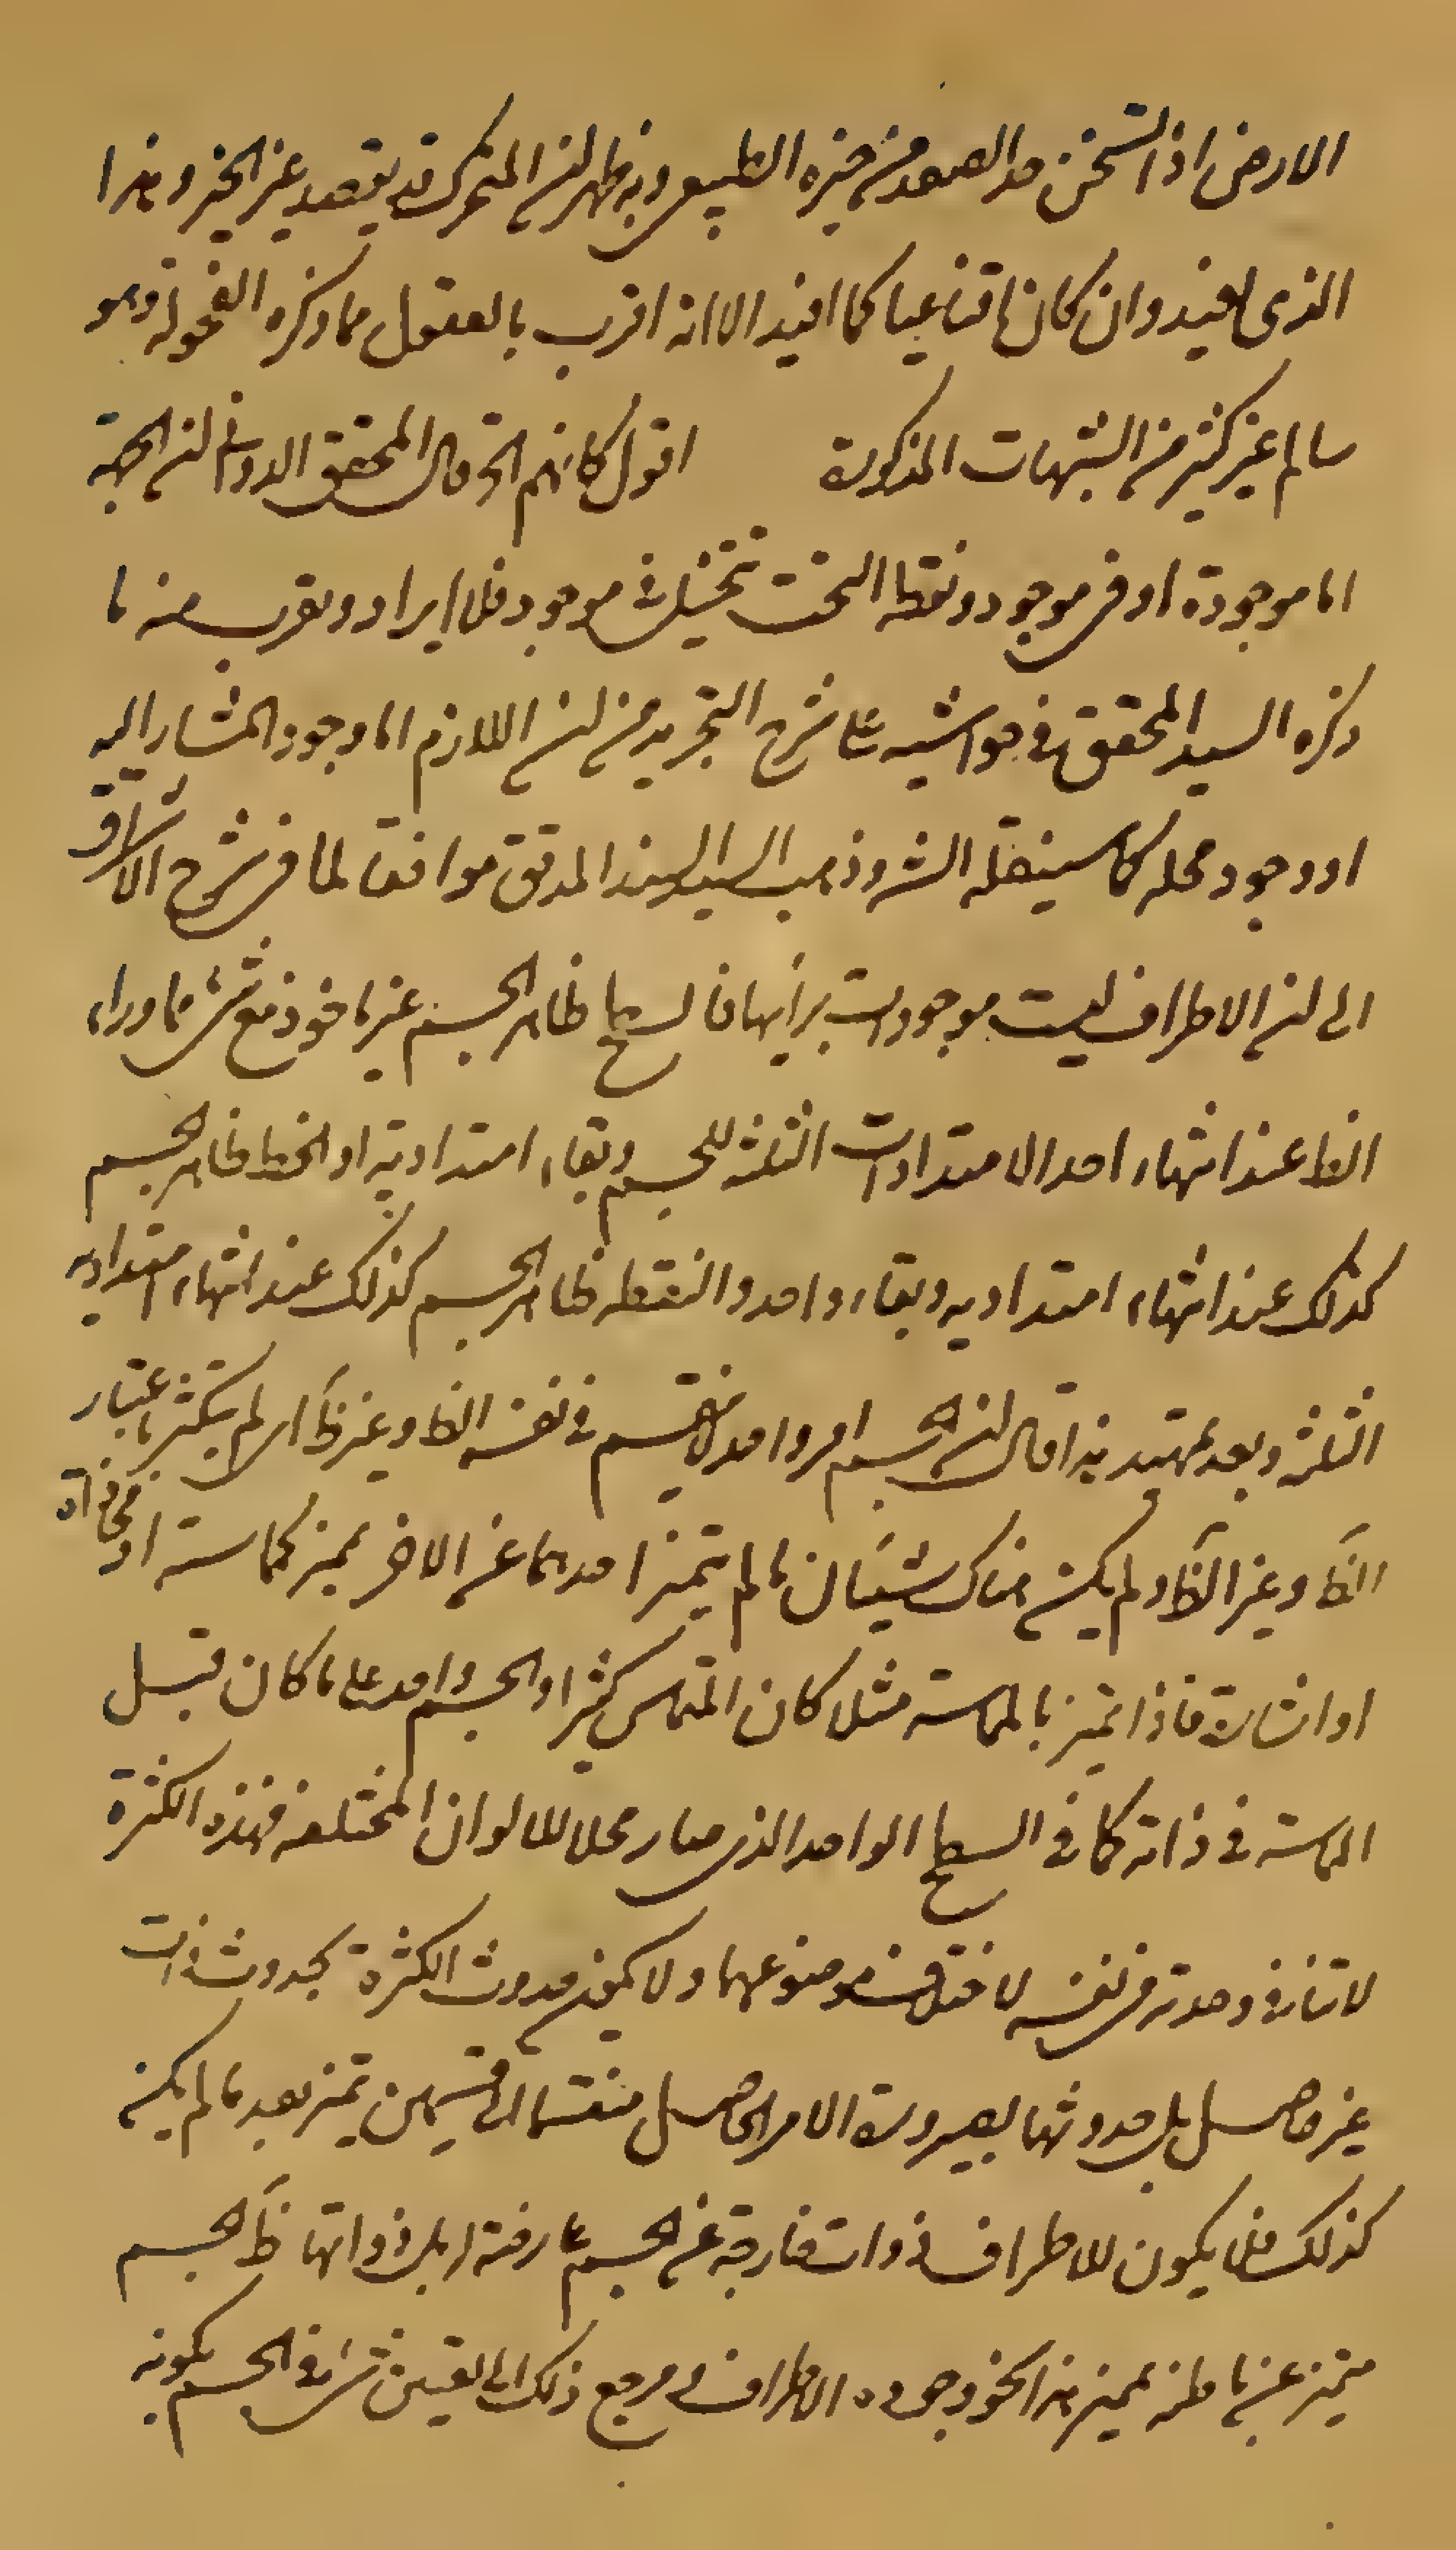 الارض اذا تسخن حد الصعود من حيزه الطبيعى وبه ظهر ان المتحرك قد يقصد عن الحيز وهذا
الذى افيد وان كان اقناعيا كما افيد الا انه اقرب بالعقول مما ذكره الفحول وهو
سالم عن كثير من الشبهات المذكورة اقول كانهم الخ قال المحقق الدوانى ان الجهة
اما موجودة او فى موجود ونقطه التحت تتخيل فى موجود فلا ايراد ويقرب منه ما
ذكره السيد المحقق فى حواشيه على شرح التجريد من ان اللازم اما وجود المشار اليه
او وجود محله كما سينقله الش وذهب السيد السند المدقق موافقا لما فى شرح الاشراق
الى ان الاطراف ليست موجودات برأيها فالسطح ظاهر الجسم غير ماخوذ مع شئ مما وراء
الظا عند انتهاء احد الامتدادات الثلثه للجسم وبقاء امتداديه والخط ظاهر الجسم
كذلك عند انتهاء امتداديه وبقاء واحد والنقطه ظاهر الجسم كذلك عند انتهاء امتداديه
الثلثه وبعد تمهيد هذا قال ان الجسم امر واحد لا ينقسم فى نفسه الظا وغير ظا اى لم يتكثر باعتبار
الظا وغير الظا ولم يكن هناك شيئان ما لم يتميز احدهما عن الاخر بمميز كمماسته او محاذاة
او اشارة فاذا تميز بالمماسه مثلا كان التماس كثيرا والجسم واحد على ما كان قبل
المماسته فى ذاته كما فى السطح الواحد الذى صار محلا للالوان المختلفه فهذه الكثرة
لا تنافى وحدته فى نفسه لاختلاف موضوعهما ولا يكون حدوث الكثرة بحدوث ذات
غير حاصل بل حدوثها بصيرورة الامر الحاصل منقسما الى قسمين بتميز بعد ما لم يكن
كذلك فلا يكون للاطراف ذوات خارجة عن الجسم عارضة له بل ذواتها ظا الجسم
متميز عن باطنه بمميز هذا نحو وجود الاطراف ومرجع ذلك الى تعين شئ فى الجسم بكونه